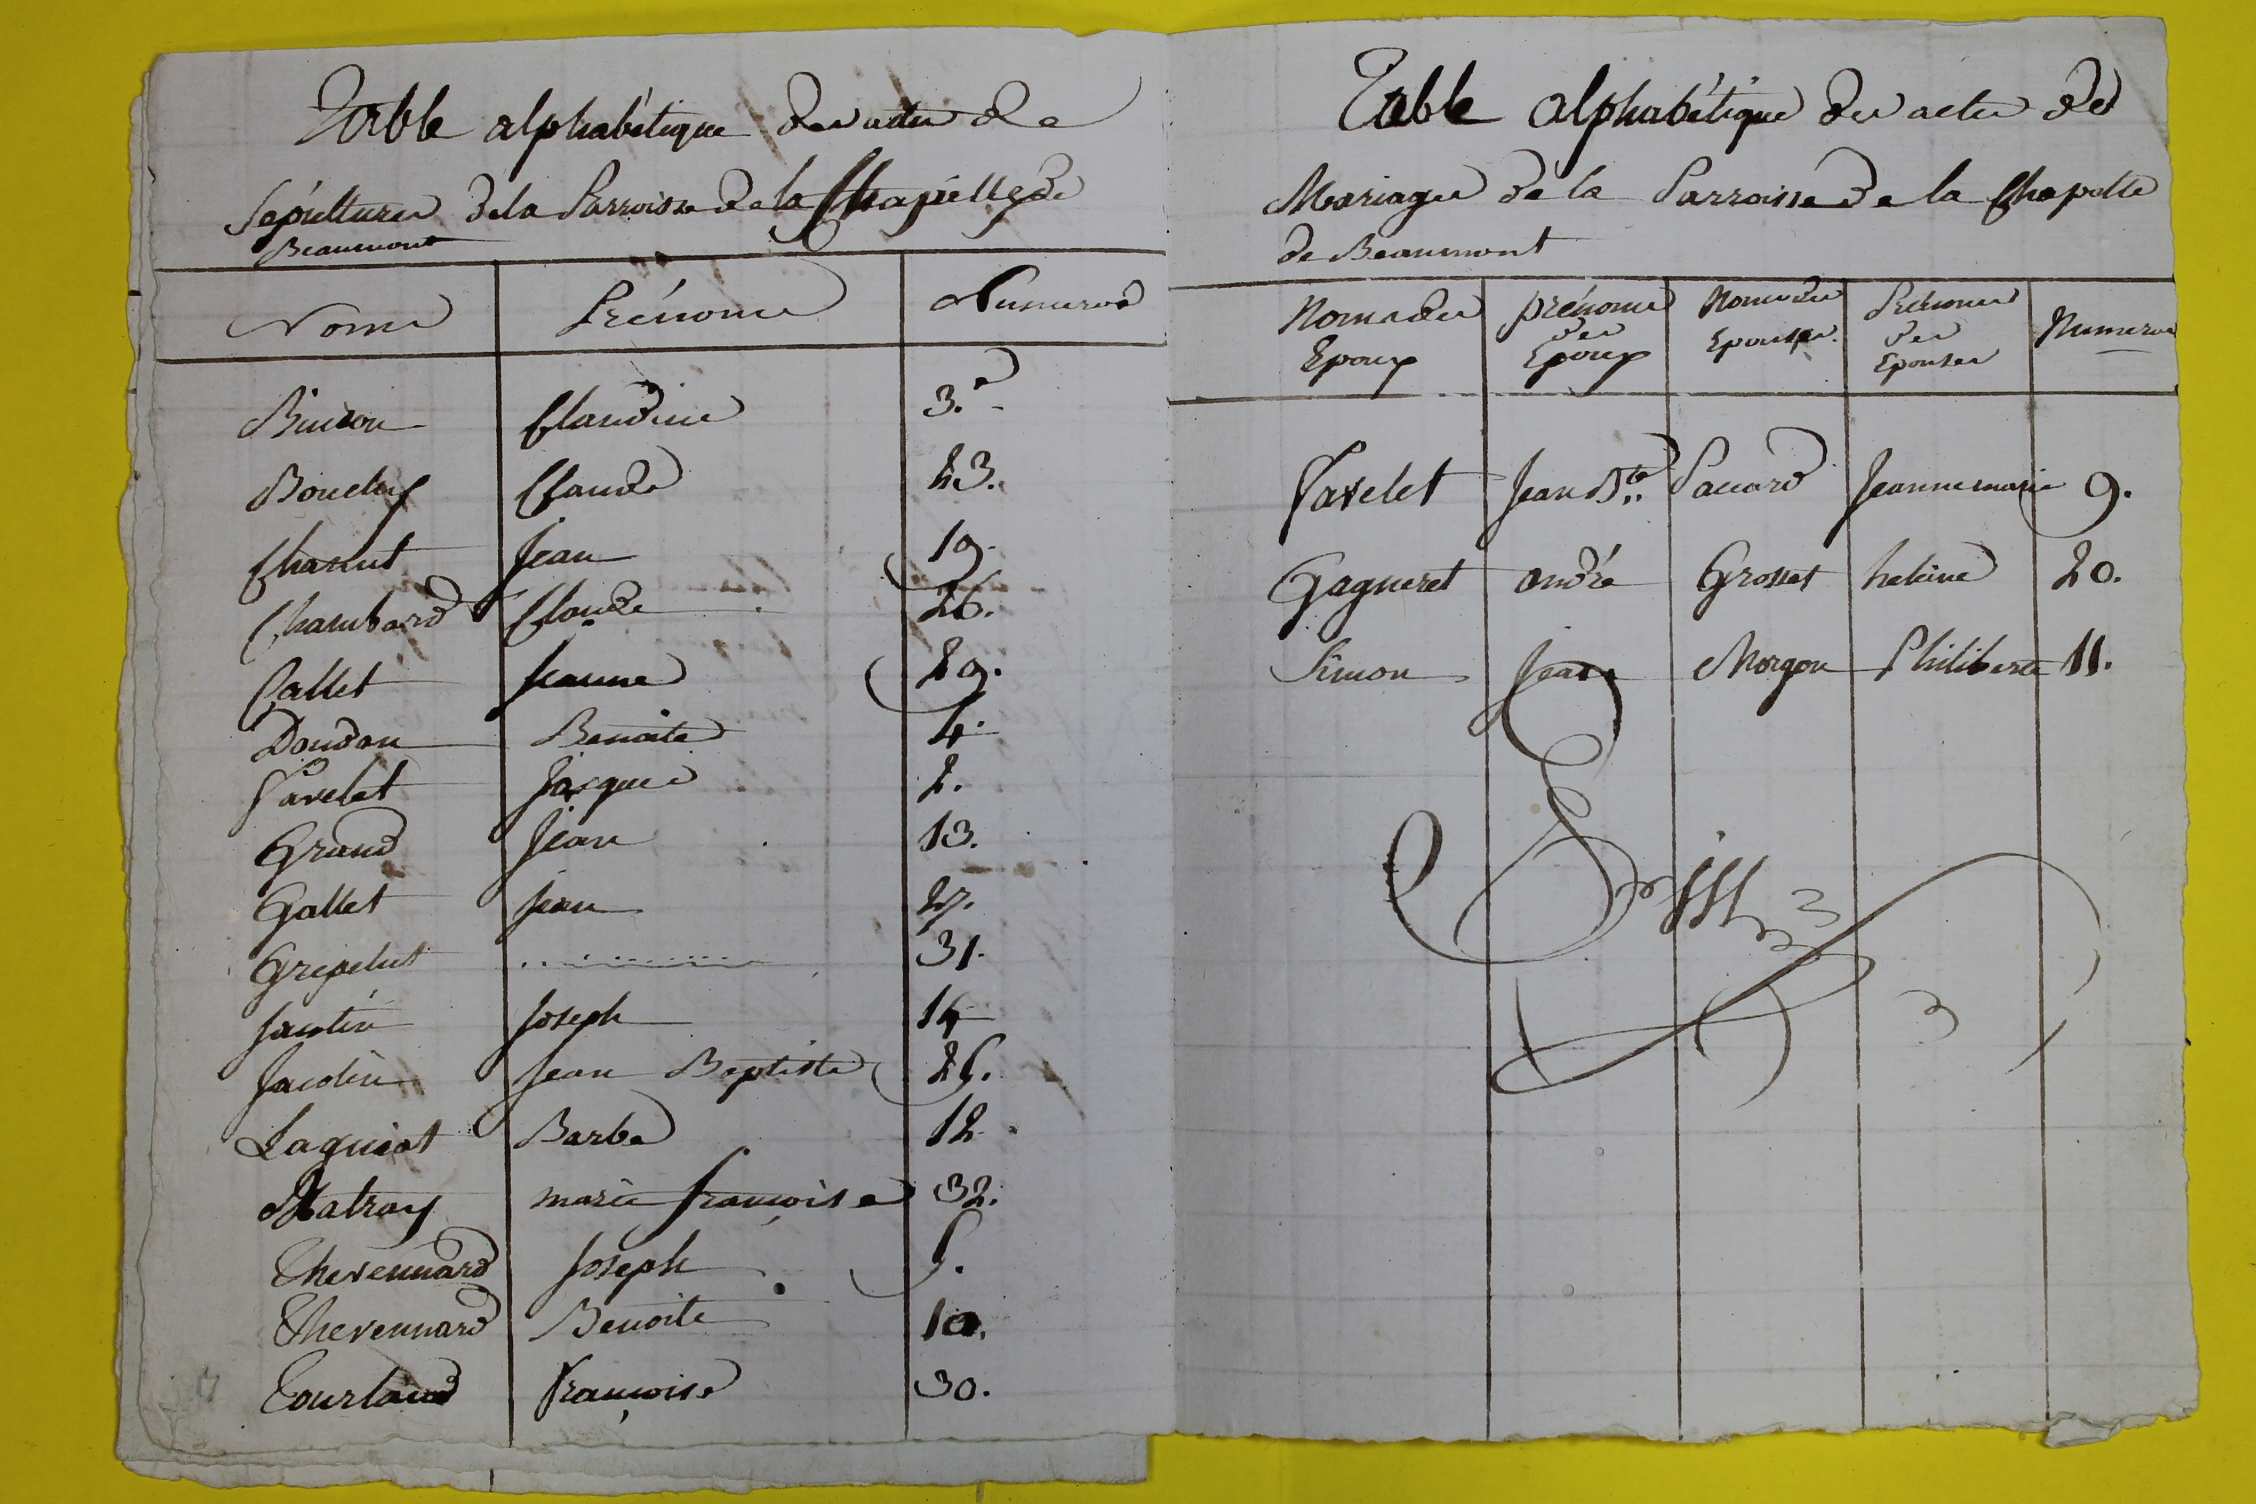 Table alphabétique des actes de
Sépultures de la Parroisse de la Chapelle de
Beaumont
Noms Prénoms Numeros
Buidon Claudine 3.e
Bouchy Claude 23.
Chanut Jean 19.
Chambard Claude 26.
Callet Jeanne 29.
Doudon Benoite 4.
Favelet Jacques 2.
Grand Jean 13.
Gallet Jean 27.
Grepelut 31.
Jacolin Joseph 14
Jacolin Jean Baptiste 25.
Laguiot Barbe 12
Matray marie francoise 32.
Thevennard Joseph 5.
Thevennard Benoite 10.
Tourland Françoise 30.
Table alphabétique des actes de
Mariages de la Parroisse de la Chapelle
de Beaumont
Noms des Epoux prénoms des Epoux Noms des Epouses Prénoms des Epouses Numeros
Favelet Jean Bte Paccard Jeanne marie 9.
Gagneret andré Grosset heleine 20.
Simon Jean Morgon Philiberte 11.